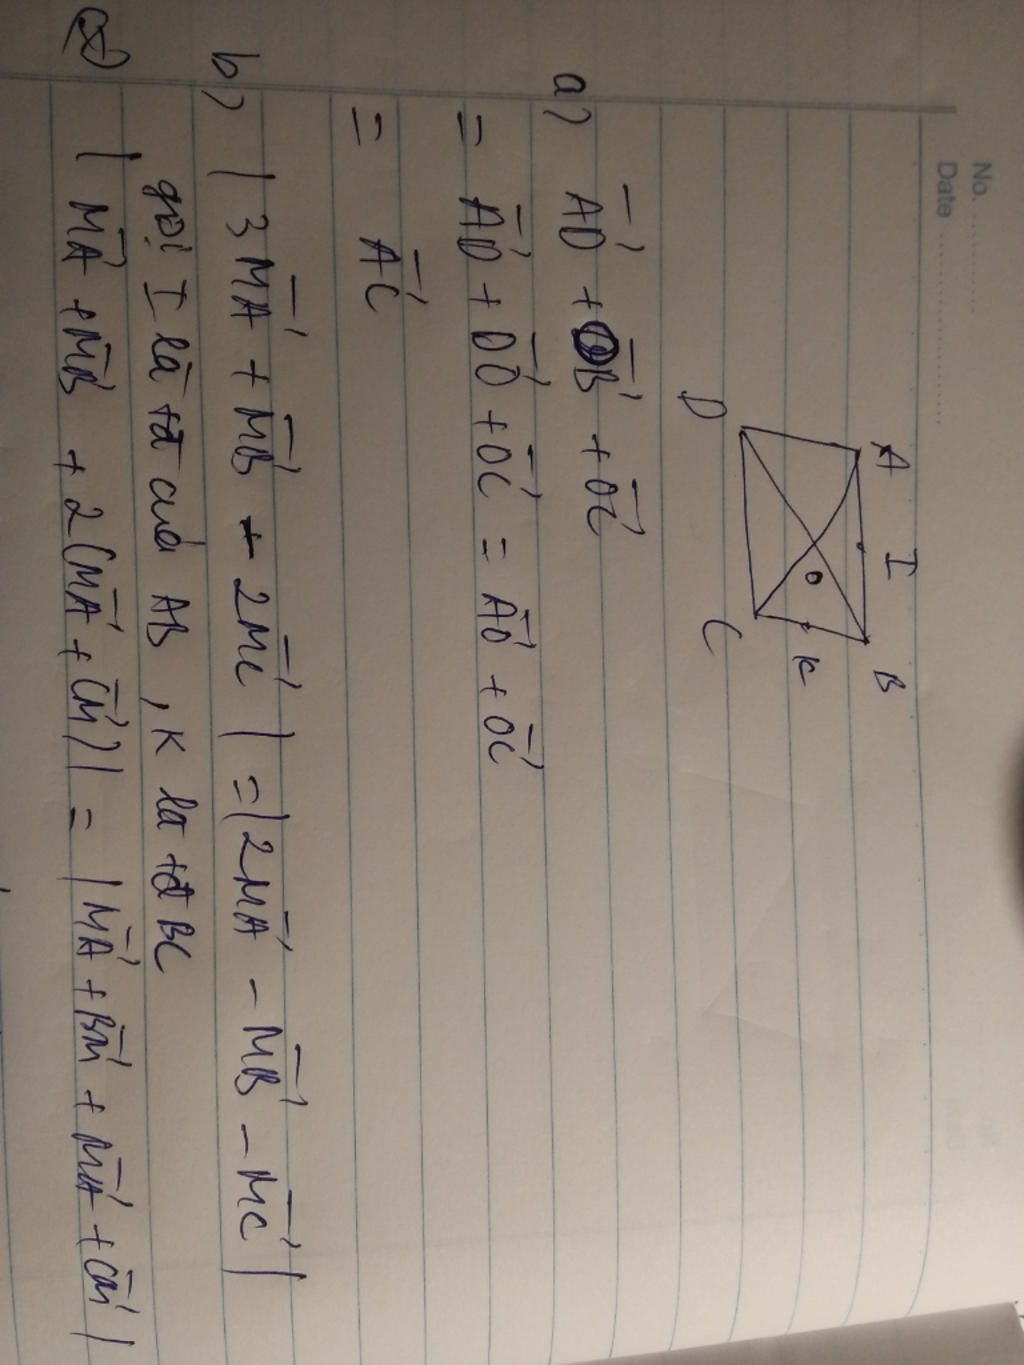 No. ............
Date ........................
A I B
O K
D C
a) AD⃗ + OB⃗ + OC⃗
= AD⃗ + DO⃗ + OC⃗ = AO⃗ + OC⃗
= AC⃗
b) | 3MA⃗ + MB⃗ - 2MC⃗ | = | 2MA⃗ - MB⃗ - MC⃗ |
gọi I là tđ của AB , K là tđ BC
(*) | MA⃗ + MB⃗ + 2(MA⃗ + CM⃗) | = | MA⃗ + BM⃗ + MA⃗ + CM⃗ |